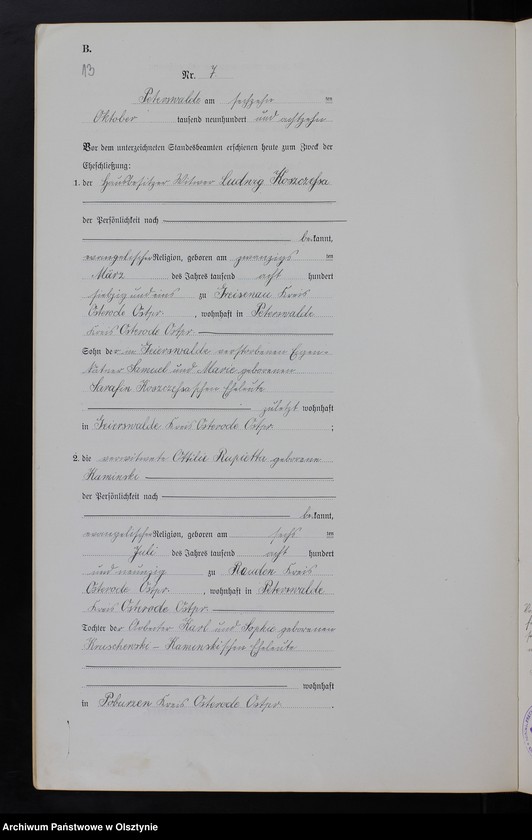 B.
13
Nr. 7
Peterswalde am sechzehn ten
Oktober tausend neunhundert und achtzehn
Vor dem unterzeichneten Standesbeamten erschienen heute zum Zweck der
Eheschließung:
1. der Hausbesitzer Witwer Ludwig Koszczessa
der Persönlichkeit nach
be kannt,
evangelischer Religion, geboren am zwanzigs ten
März des Jahres tausend acht hundert
siebzig und eins zu Kreis
Osterode Ostpr. , wohnhaft in Peterswalde
Kreis Osterode Ostpr.
Sohn der in Geierswalde verstorbenen Eigen-
kätner Samuel und Marie geborenen
Koszczessa'schen Eheleute
zuletzt wohnhaft
in Geierswalde Kreis Osterode Ostpr. ;
2. die verwitwete Ottilie geborene
Kaminski
der Persönlichkeit nach
be kannt,
evangelischer Religion, geboren am sechs ten
Juli des Jahres tausend acht hundert
und neunzig zu Kreis
Osterode Ostpr. , wohnhaft in Peterswalde
Kreis Osterode Ostpr.
Tochter der Arbeiter Karl und Sophie geborenen
Kruschewski - Kaminski'schen Eheleute
wohnhaft
in Poburzen Kreis Osterode Ostpr. .
Archiwum Państwowe w Olsztynie